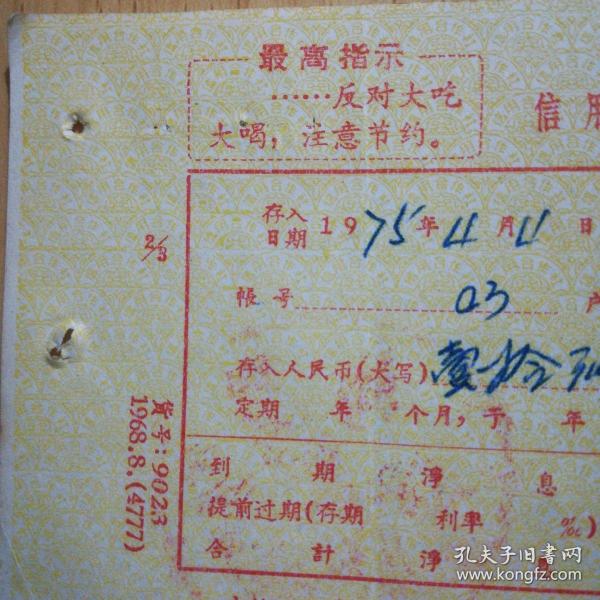 最高指示
……反对大吃
大喝，注意节约。
信用
存入日期 1975年4月4日
帐号 03 户
存入人民币(大写) 壹拾
定期 年 个月，于 年
到 期 净 息
提前过期(存期 利率 ‰)
合 計 净
2/3
货号：9023
1968.8.(4777)
孔夫子旧书网
www.kongfz.com